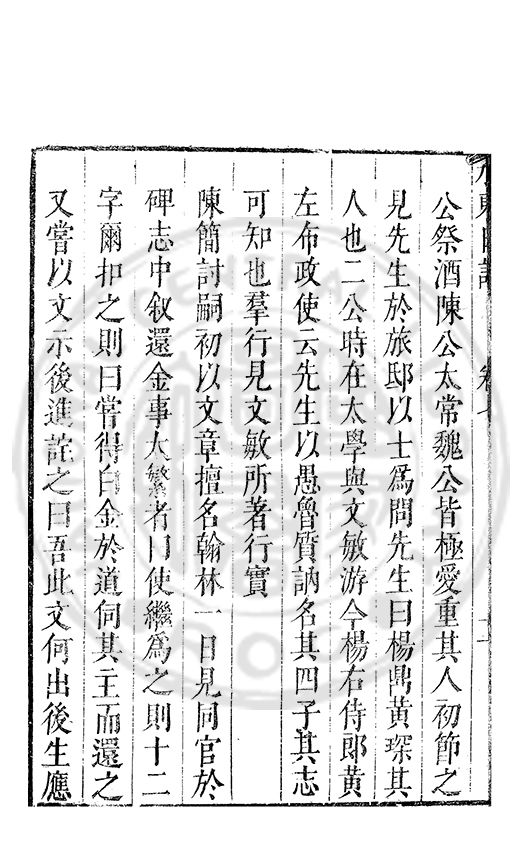 水東日記 卷七 十一
公祭酒陳公太常魏公皆極愛重其人初節之
見先生於旅邸以士爲問先生曰楊鼎黃琛其
人也二公時在太學與文敏游今楊右侍郎黃
左布政使云先生以愚魯質訥名其四子其志
可知也羣行見文敏所著行實
陳簡討嗣初以文章擅名翰林一日見同官於
碑志中叙還金事大繁者曰使繼爲之則十二
字爾扣之則曰嘗得白金於道伺其主而還之
又嘗以文示後進詮之曰吾此文何出後生應